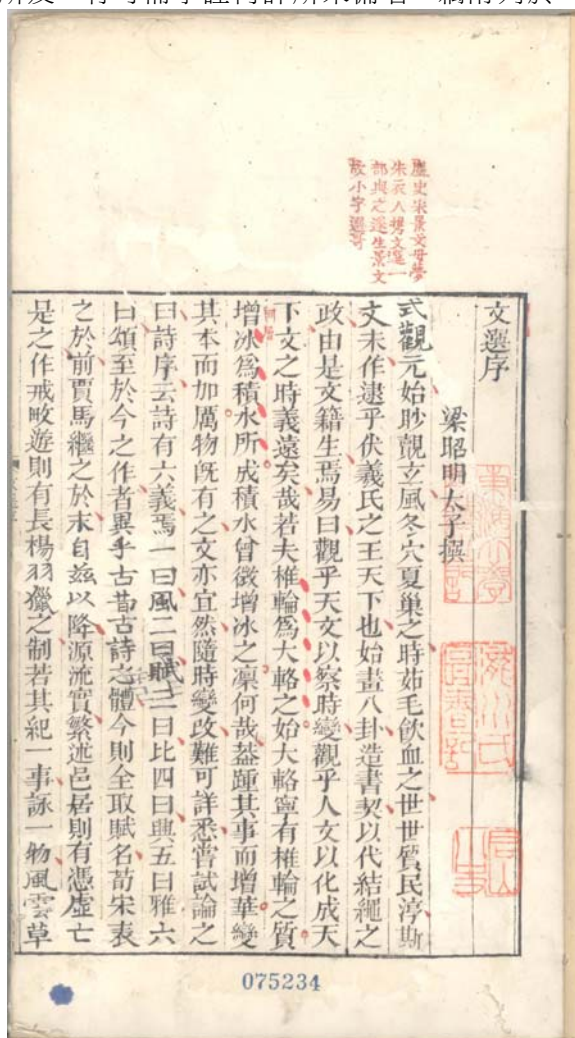 麈史宋景文母夢
朱衣人攜文選一
部與之遂生景文
故小字選哥
文選序
梁昭明太子撰
式觀元始眇覿玄風冬穴夏巢之時茹毛飲血之世世質民淳斯
文未作逮乎伏羲氏之王天下也始畫八卦造書契以代結繩之
政由是文籍生焉易曰觀乎天文以察時變觀乎人文以化成天
下文之時義遠矣哉若夫椎輪爲大輅之始大輅寧有椎輪之質
增冰爲積水所成積水曾微增冰之凜何哉葢踵其事而增華變
其本而加厲物旣有之文亦宜然隨時變改難可詳悉嘗試論之
曰詩序云詩有六義焉一曰風二曰賦三曰比四曰興五曰雅六
曰頌至於今之作者異乎古昔古詩之體今則全取賦名荀宋表
之於前賈馬繼之於末自茲以降源流實繁述邑居則有憑虛亡
是之作戒畋遊則有長楊羽獵之制若其紀一事詠一物風雲草
瀧川氏
圖書記
075234